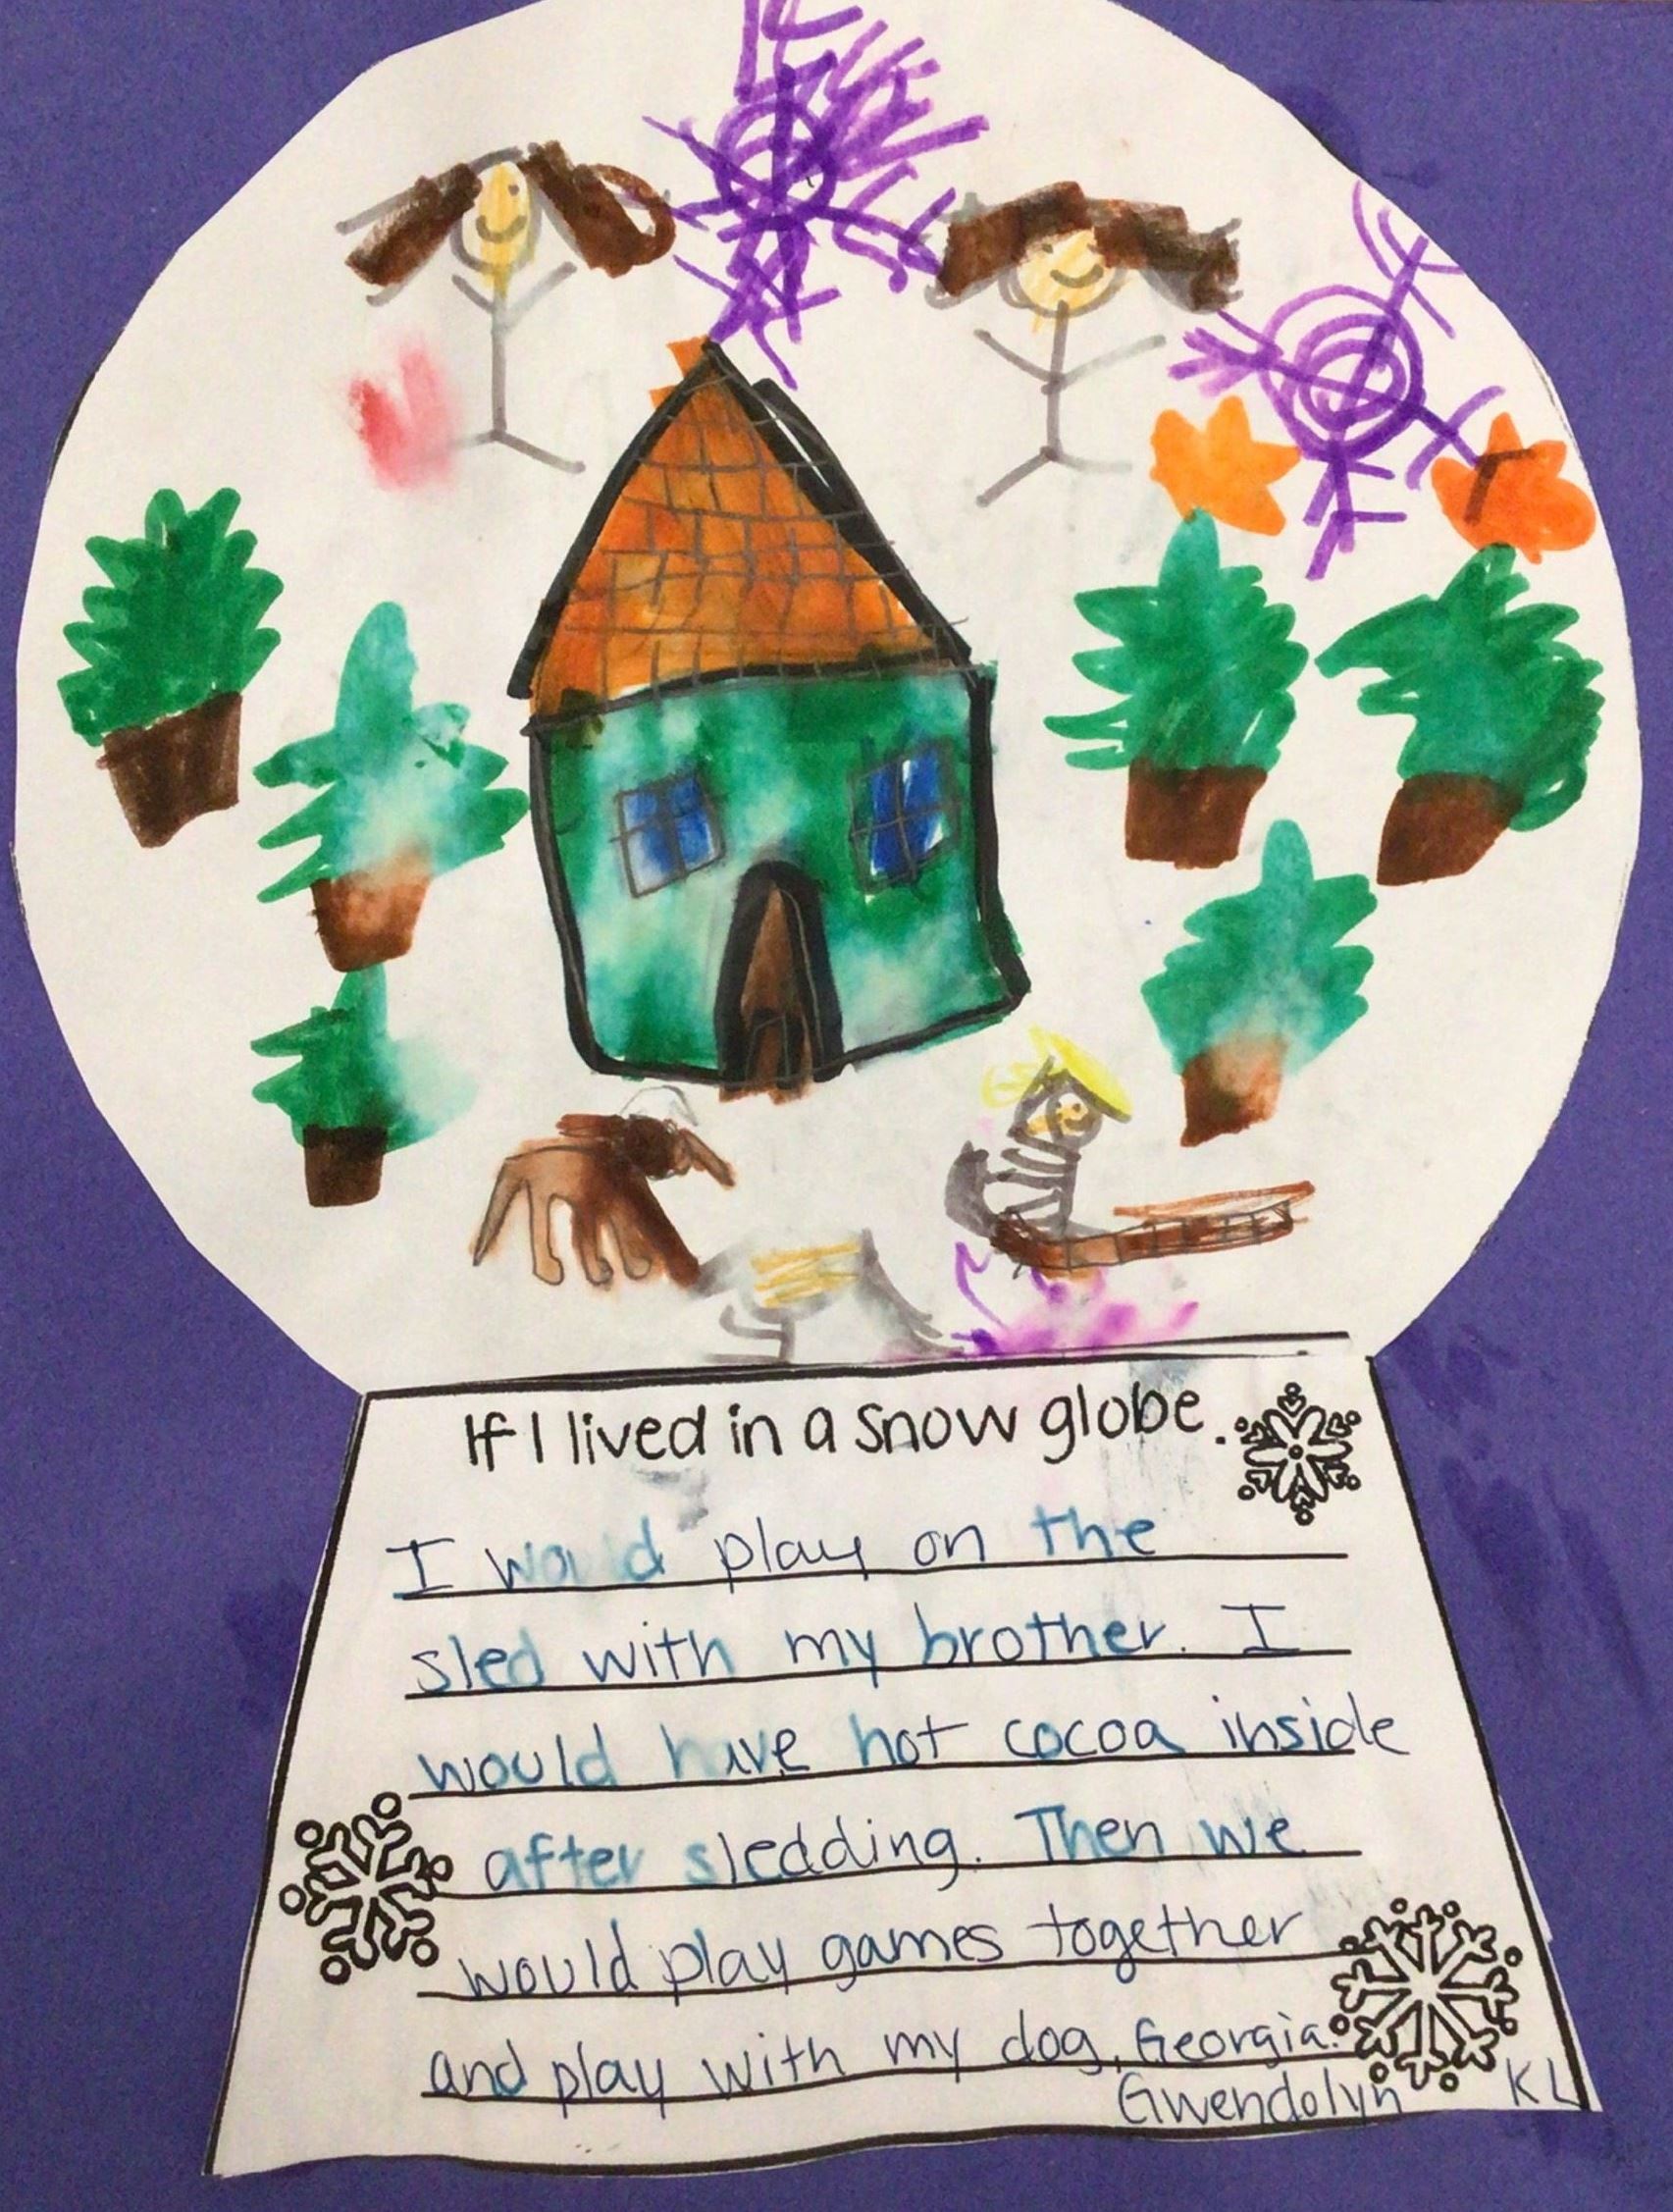 If I lived in a snow globe..
I would play on the
sled with my brother. I
would have hot cocoa inside
after sledding. Then we
would play games together
and play with my dog, Georgia.
Gwendolyn KL